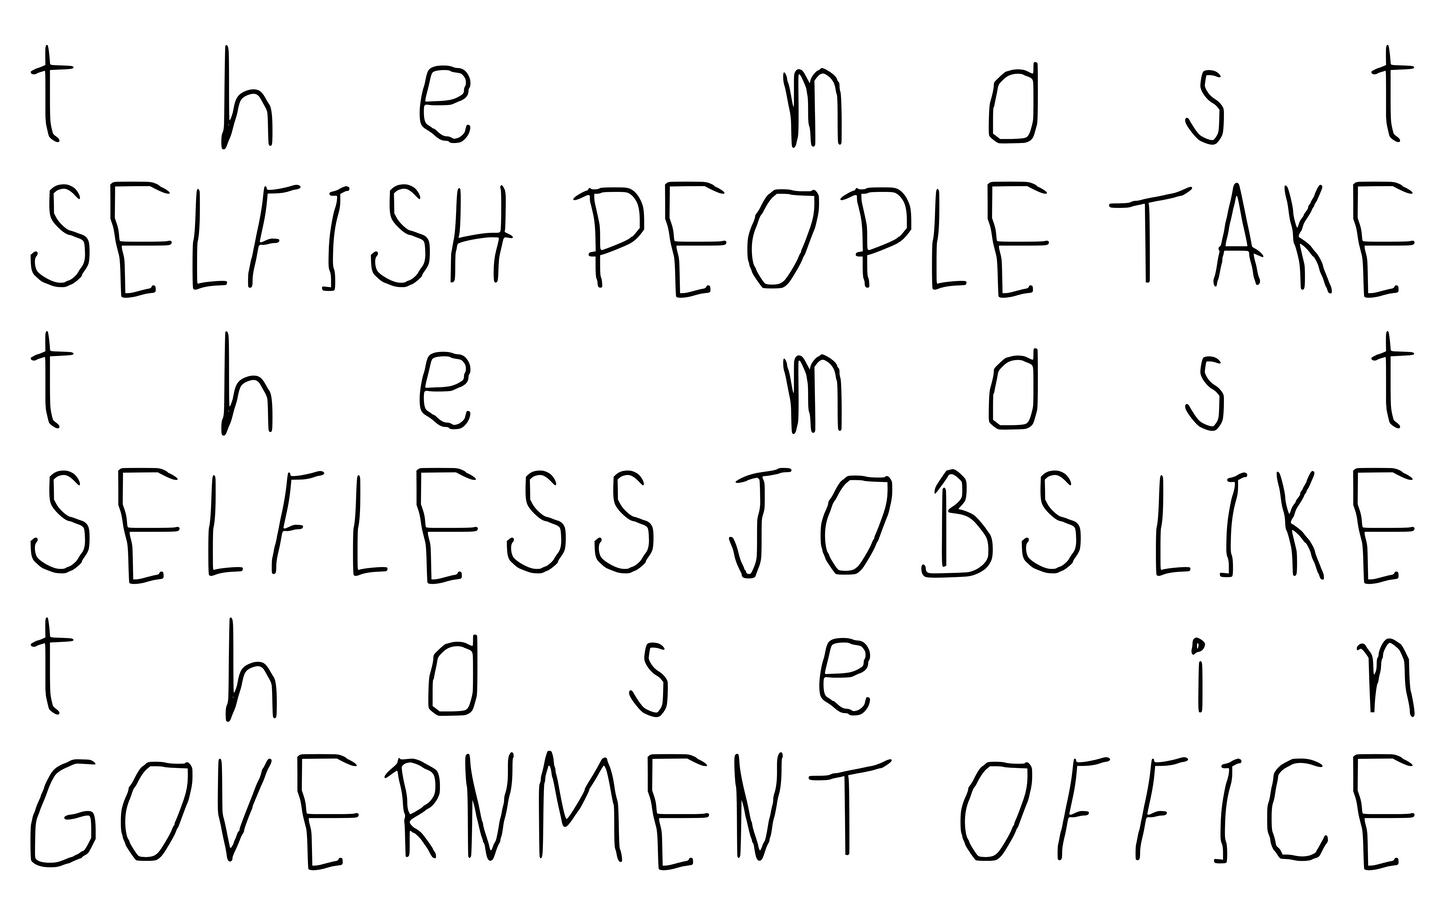 the most
SELFISH PEOPLE TAKE
the most
SELFLESS JOBS LIKE
those in
GOVERNMENT OFFICE